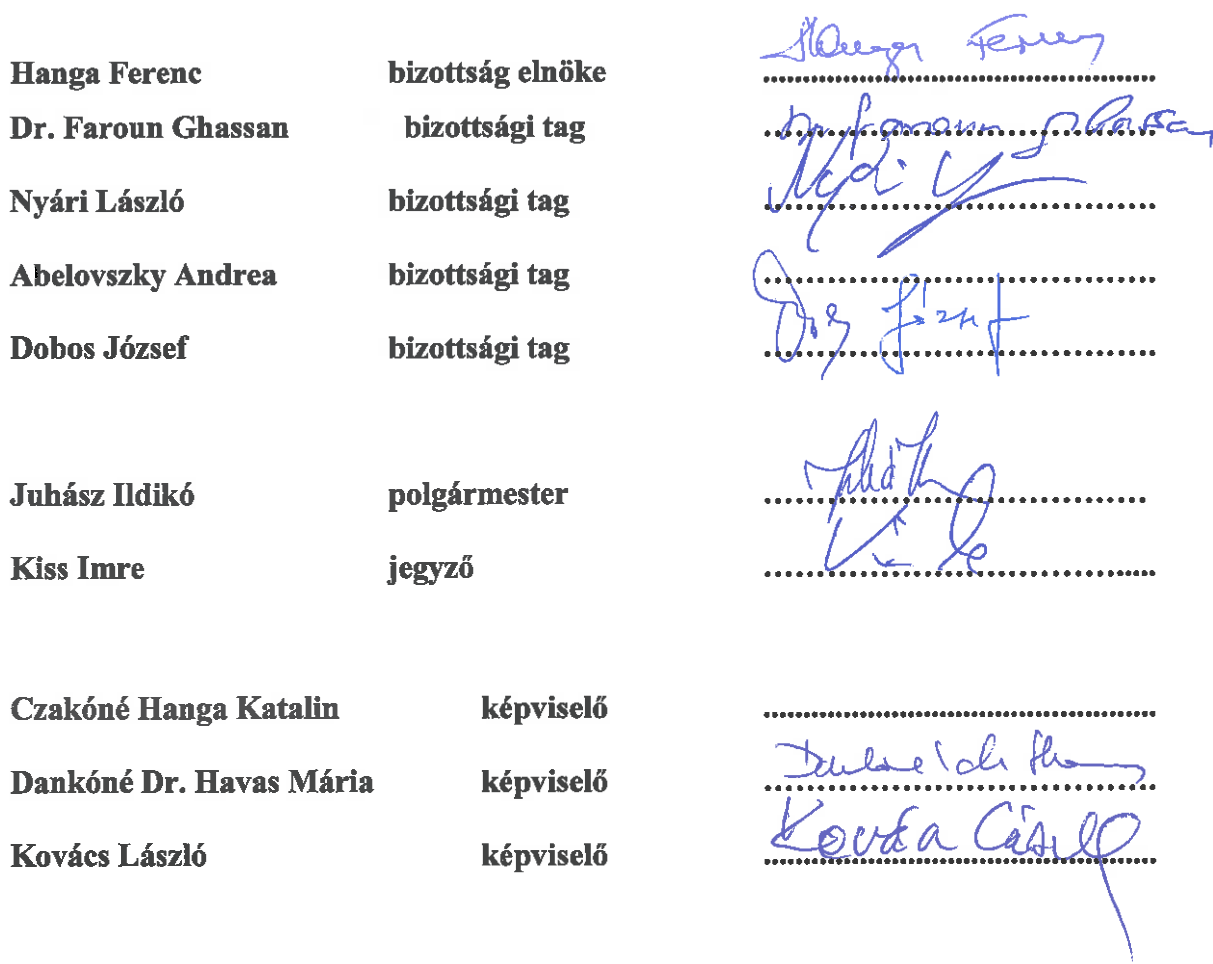 Hanga Ferenc bizottság elnöke Hanga Ferenc
Dr. Faroun Ghassan bizottsági tag Dr Faroun Ghassan
Nyári László bizottsági tag
Abelovszky Andrea bizottsági tag
Dobos József bizottsági tag József
Juhász Ildikó polgármester
Kiss Imre jegyző
Czakóné Hanga Katalin képviselő
Dankóné Dr. Havas Mária képviselő
Kovács László képviselő Kovács László